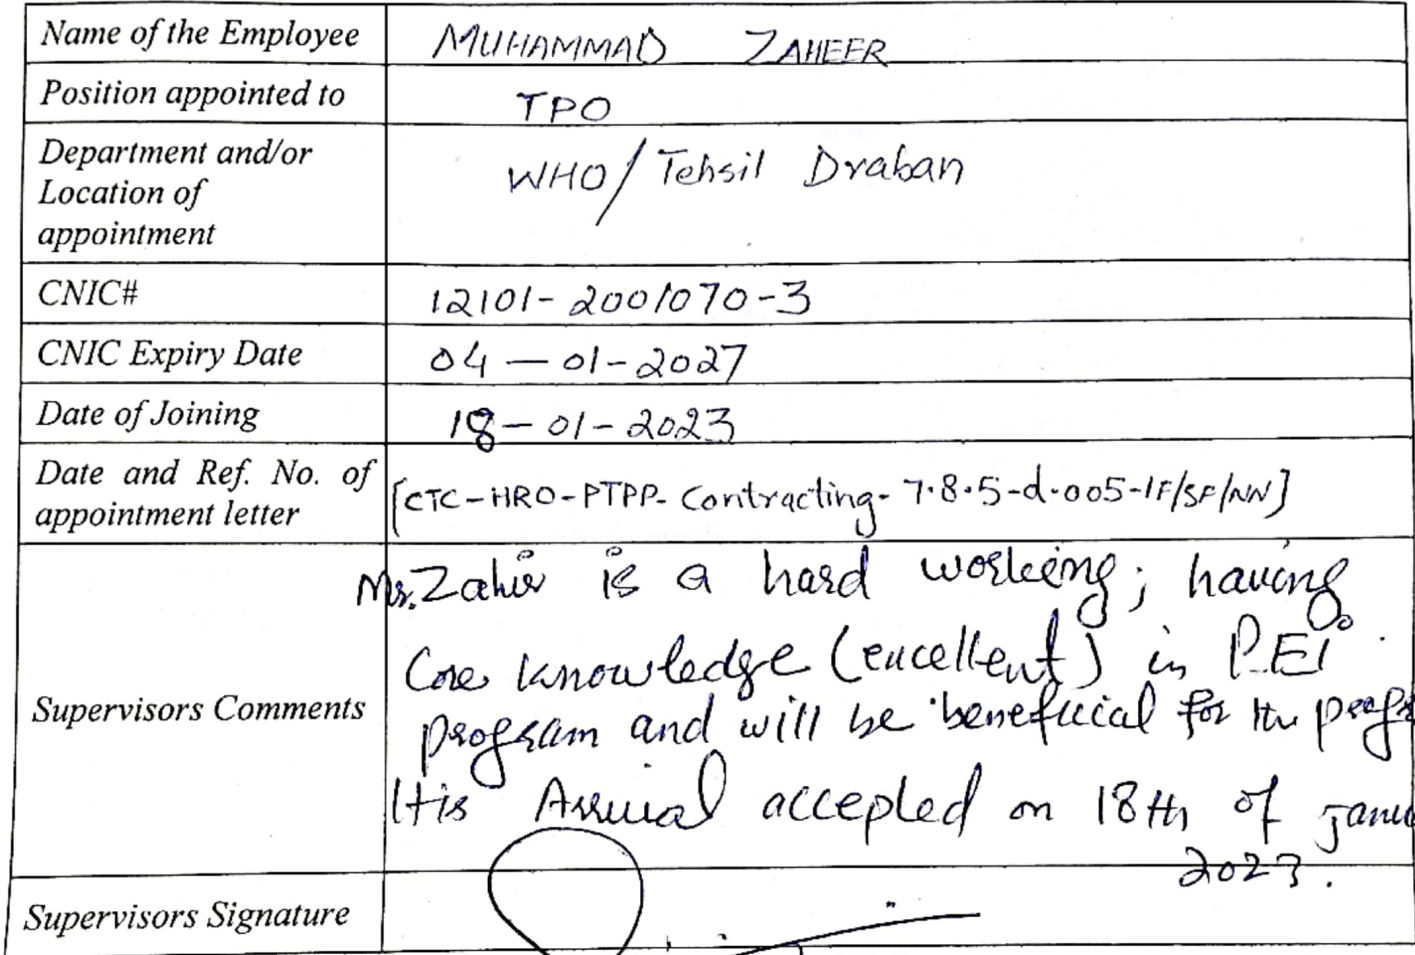 Name of the Employee MUHAMMAD ZAHEER
Position appointed to TPO
Department and/or
Location of
appointment
WHO/Tehsil Draban
CNIC# 12101-2001070-3
CNIC Expiry Date 04-01-2027
Date of Joining 18-01-2023
Date and Ref. No. of
appointment letter
[CTC-HRO-PTPP-Contracting-7.8.5-d.005-IF/SF/NN]
Supervisors Comments
Mr. Zahir is a hard working; having
Core knowledge (excellent) in PEI
program and will be beneficial for the
His Arrival accepted on 18th of
2023.
Supervisors Signature